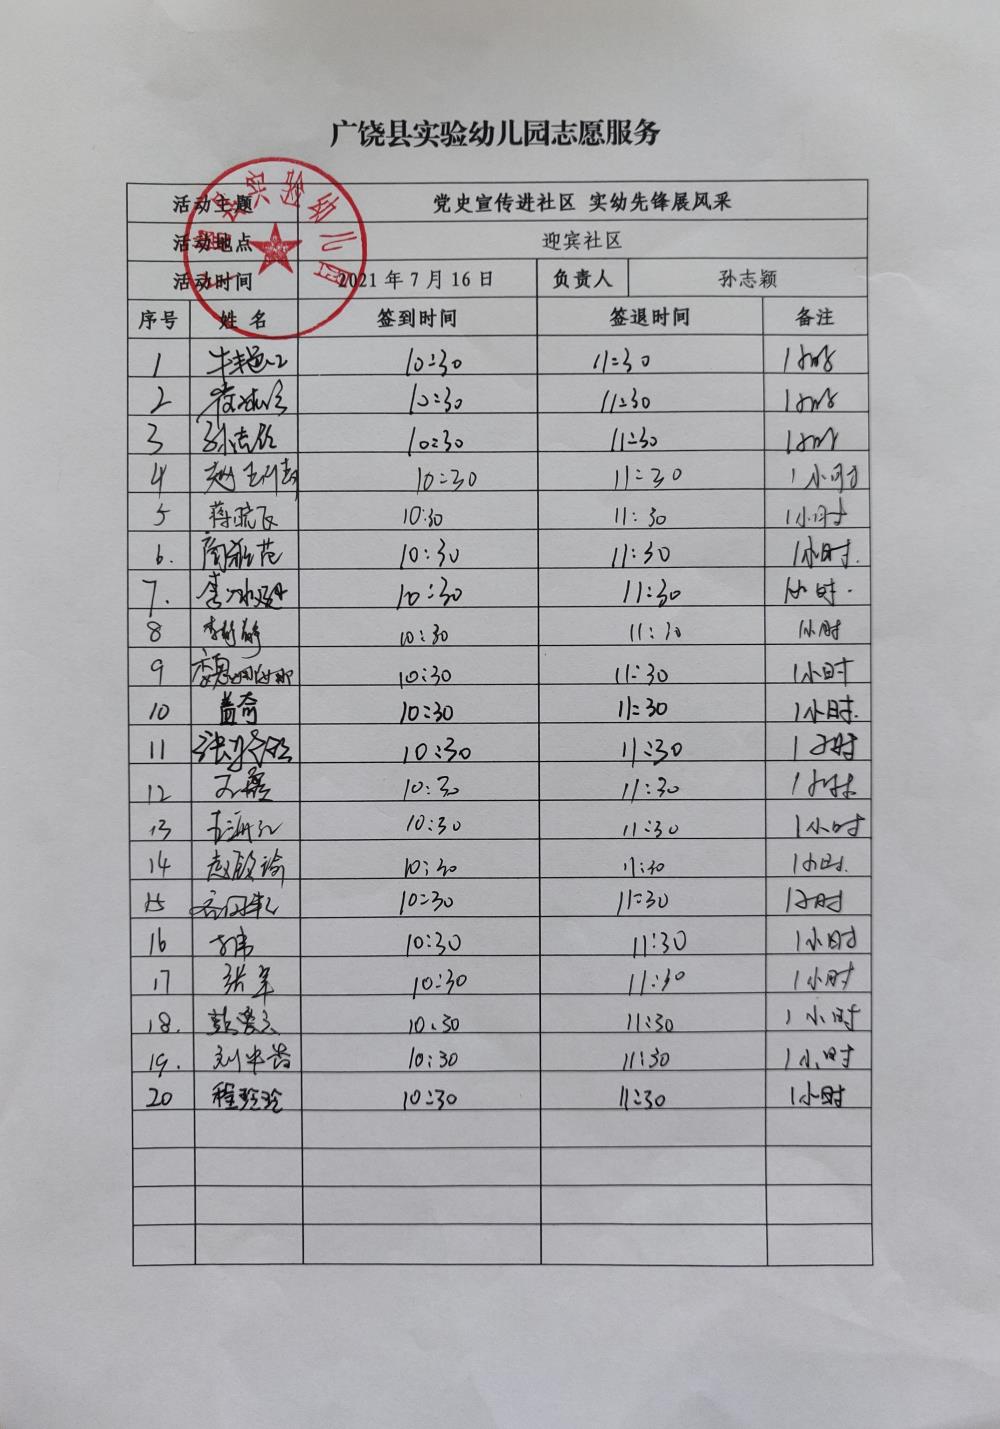 广饶县实验幼儿园志愿服务
活动主题 党史宣传进社区 实幼先锋展风采
活动地点 迎宾社区
活动时间 2021年7月16日 负责人 孙志颖
序号 姓名 签到时间 签退时间 备注
1 10:30 11:30 1小时
2 10:30 11:30 1小时
3 10:30 11:30 1小时
4 10:30 11:30 1小时
5 蒋晓飞 10:30 11:30 1小时
6. 10:30 11:30 1小时.
7. 10:30 11:30 1小时.
8 10:30 11:30 1小时
9 魏娜娜 10:30 11:30 1小时
10 盖奇 10:30 11:30 1小时.
11 10:30 11:30 1小时
12 10:30 11:30 1小时
13 10:30 11:30 1小时
14 10:30 11:30 1小时.
15 10:30 11:30 1小时
16 10:30 11:30 1小时
17 张军 10:30 11:30 1小时
18. 10:30 11:30 1小时
19. 10:30 11:30 1小时
20 程玲玲 10:30 11:30 1小时
实验幼儿园